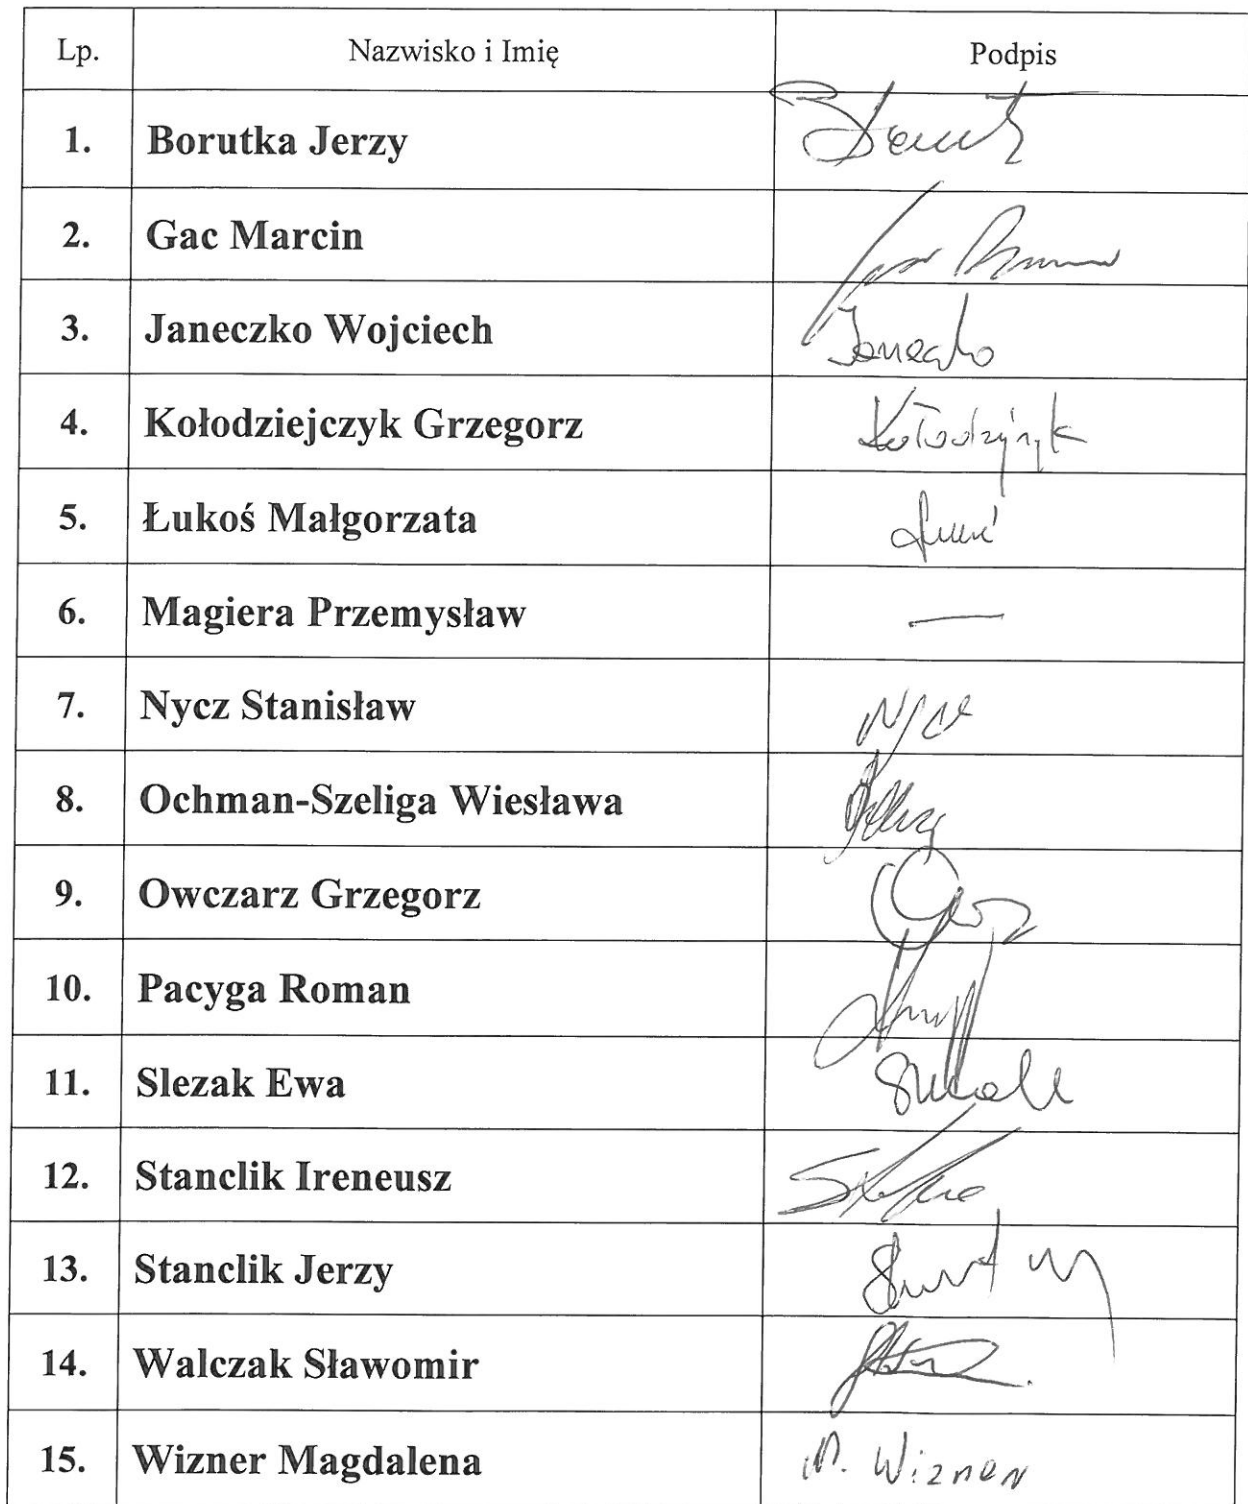 Lp. Nazwisko i Imię Podpis
1. Borutka Jerzy
2. Gac Marcin
3. Janeczko Wojciech Janeczko
4. Kołodziejczyk Grzegorz
5. Łukoś Małgorzata
6. Magiera Przemysław —
7. Nycz Stanisław
8. Ochman-Szeliga Wiesława
9. Owczarz Grzegorz
10. Pacyga Roman
11. Slezak Ewa
12. Stanclik Ireneusz
13. Stanclik Jerzy
14. Walczak Sławomir
15. Wizner Magdalena M. Wizner